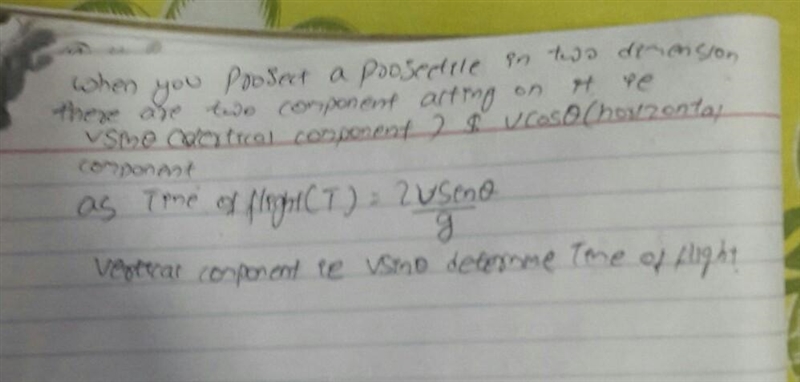 when you Prosect a prosectile in two dimension
there are two component acting on it ie
vsinθ (vertical component) & vcosθ (horizontal
component
as Time of flight (T) = 2vsinθ/g
vertical component ie vsinθ determine Time of flight.